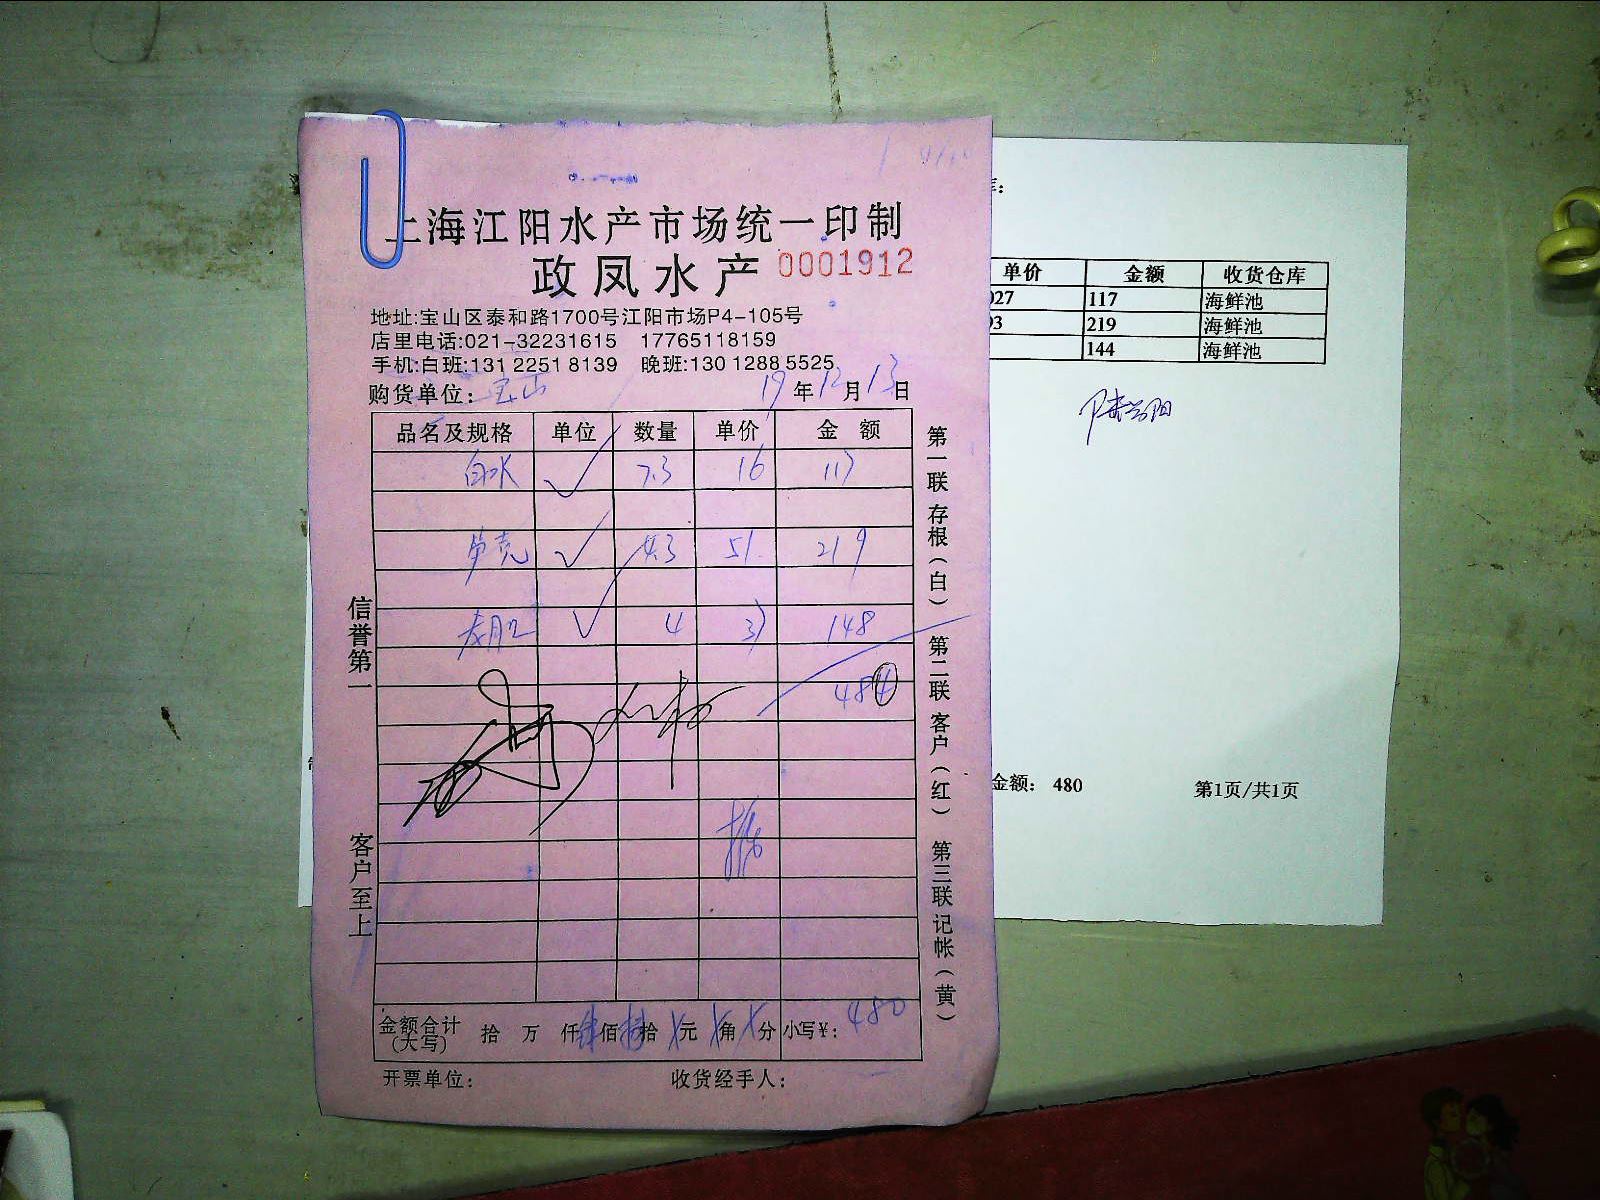 上海江阳水产市场统一印制
政凤水产 0001912
地址:宝山区泰和路1700号江阳市场P4-105号
店里电话:021-32231615 17765118159
手机:白班:131 2251 8139 晚班:130 1288 5525
购货单位: 宝山 19年12月13日
品名及规格 单位 数量 单价 金额
白水 7.3 16 117
4.3 51 219
4 37 148
484
金额合计(大写) 拾 万 仟 佰 拾 元 角 分 小写¥: 480
开票单位: 收货经手人:
信誉第一
客户至上
第一联存根(白) 第二联客户(红) 第三联记帐(黄)
单价 金额 收货仓库
027 117 海鲜池
93 219 海鲜池
144 海鲜池
金额: 480 第1页/共1页